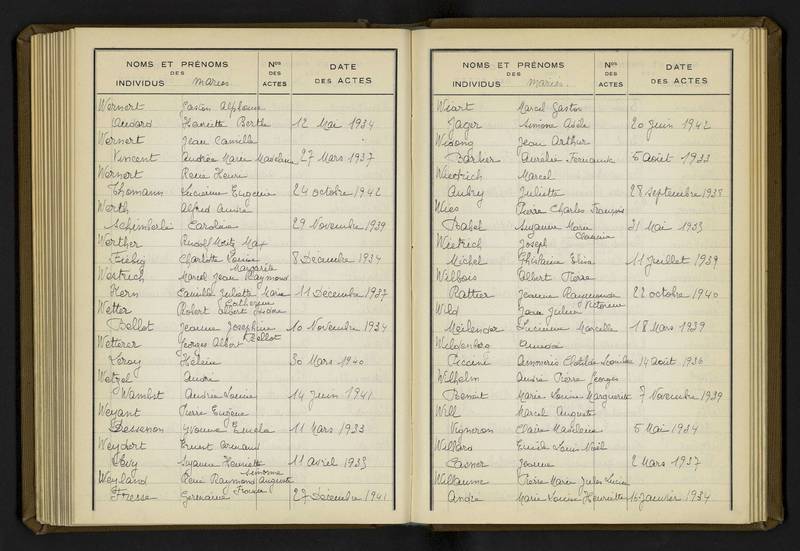 NOMS ET PRÉNOMS
DES
INDIVIDUS Mariés
Nos DES ACTES
DATE DES ACTES
Wernert Gaston Alphonse
Audard Henriette Berthe 12 Mai 1934
Wernert Jean Camille
Vincent Andrée Marie Madeleine 27 Mars 1937
Wernert René Henri
Thomann Lucienne Eugénie 24 octobre 1942
Werth Alfred André
Schimberlé Caroline 29 Novembre 1939
Werther Rudolf Moritz Max
Fiebig Charlotte Louise Margareta 8 Décembre 1934
Westrich Marcel Jean Raymond
Kern Camille Juliette Marie Catherine 11 Décembre 1937
Wetter Robert Albert
Bellot Jeanne Joséphine 10 Novembre 1934
Wetterer Georges Albert Bellot
Leroy Hélène 30 Mars 1940
Wetzel André
Wambst Andrée Louise 14 Juin 1941
Weyant Pierre Eugène
Bessenon Yvonne 11 Mars 1933
Weydert Ernest Armand
Suzanne Henriette 11 Avril 1933
Weyland René Raymond Auguste
Fresse Germaine Simonne 27 Décembre 1941
NOMS ET PRÉNOMS
DES
INDIVIDUS Mariés
Nos DES ACTES
DATE DES ACTES
Wiart Marcel Gaston
Jager Simone Adèle 20 Juin 1942
Jean Arthur
Barbier Aurélie Fernande 5 Août 1933
Wiedrich Marcel
Aubry Juliette 28 Septembre 1938
Wies Pierre Charles François
Babel Suzanne Marie 31 Mai 1933
Wietrich Joseph
Michel Ghislaine Elisa 11 Juillet 1939
Wilbois Albert Pierre
Rattier Jeanne Raymonde 22 octobre 1940
Wild Jean Julien
Meilender Lucienne Marcelle 18 Mars 1939
Wildenberg
Piccini Clotilde 14 août 1936
Wilhelm André Pierre Georges
Benoit Marie Louise Marguerite 7 Novembre 1939
Will Marcel Auguste
Vigneron Claire Madeleine 5 Mai 1934
Willard Emile Louis Noël
Casner Jeanne 2 Mars 1937
Willaume Pierre Marie Jules Lucien
André Marie Louise Henriette 16 Janvier 1934